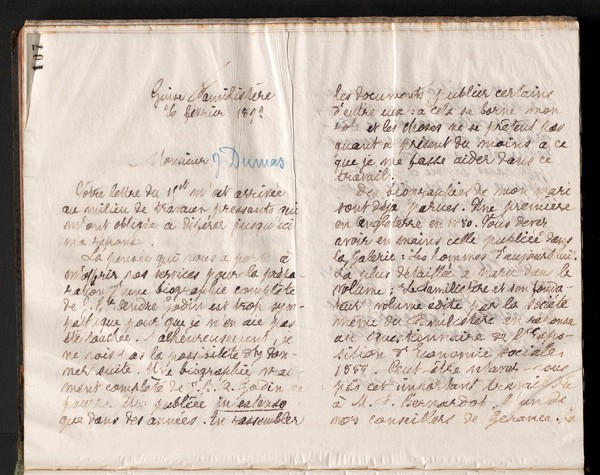 107
Guise Familistère
26 février 1892
Monsieur J Dumas
Votre lettre du 19 ct m'est arrivée
au milieu de travaux pressants qui
m'ont obligée à différer jusqu'ici
ma réponse.
La pensée qui vous a porté à
m'offrir vos services pour la prépa-
ration d'une biographie complète
de J. Bte André Godin est trop sym-
pathique pour que je n'en aie pas
été touchée. Malheureusement, je
ne vois pas la possibilité d'y don-
ner suite. Une biographie vrai-
ment complète de J. B. A. Godin ne
pourra être publiée in extenso
que dans des années. En rassembler
les documents, publier certains
d'entre eux : à cela se borne mon
rôle et les choses ne se prêtent pas
quant à présent du moins à ce
que je me fasse aider dans ce
travail.
Des biographies de mon mari
sont déjà parues. Une première
en Angleterre en 1880. Vous devez
avoir en mains celle publiée dans
la galerie : Les hommes d'aujourd'hui.
La plus détaillée a paru dans le
volume : Le familistère et son fonda-
teur volume édité par la Société
même du Familistère en réponse
au questionnaire de l'Expo-
sition d'Economie sociale
1889. Peut-être n'avez-vous
pas cet important travail dû
à M. F. Bernardot, l'un de
nos conseillers de Gérance. à